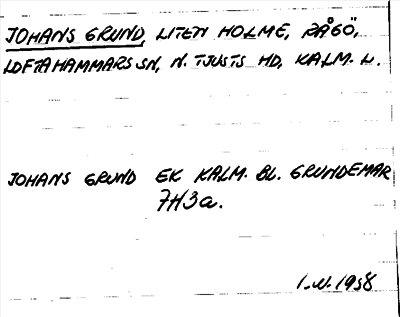 JOHANS GRUND, LITEN HOLME, RÅGÖ,
LOFTAHAMMARS SN, N. TJUSTS HD, KALM. L.
JOHANS GRUND EK KALM. BL. GRUNDEMAR
7H3a.
1958